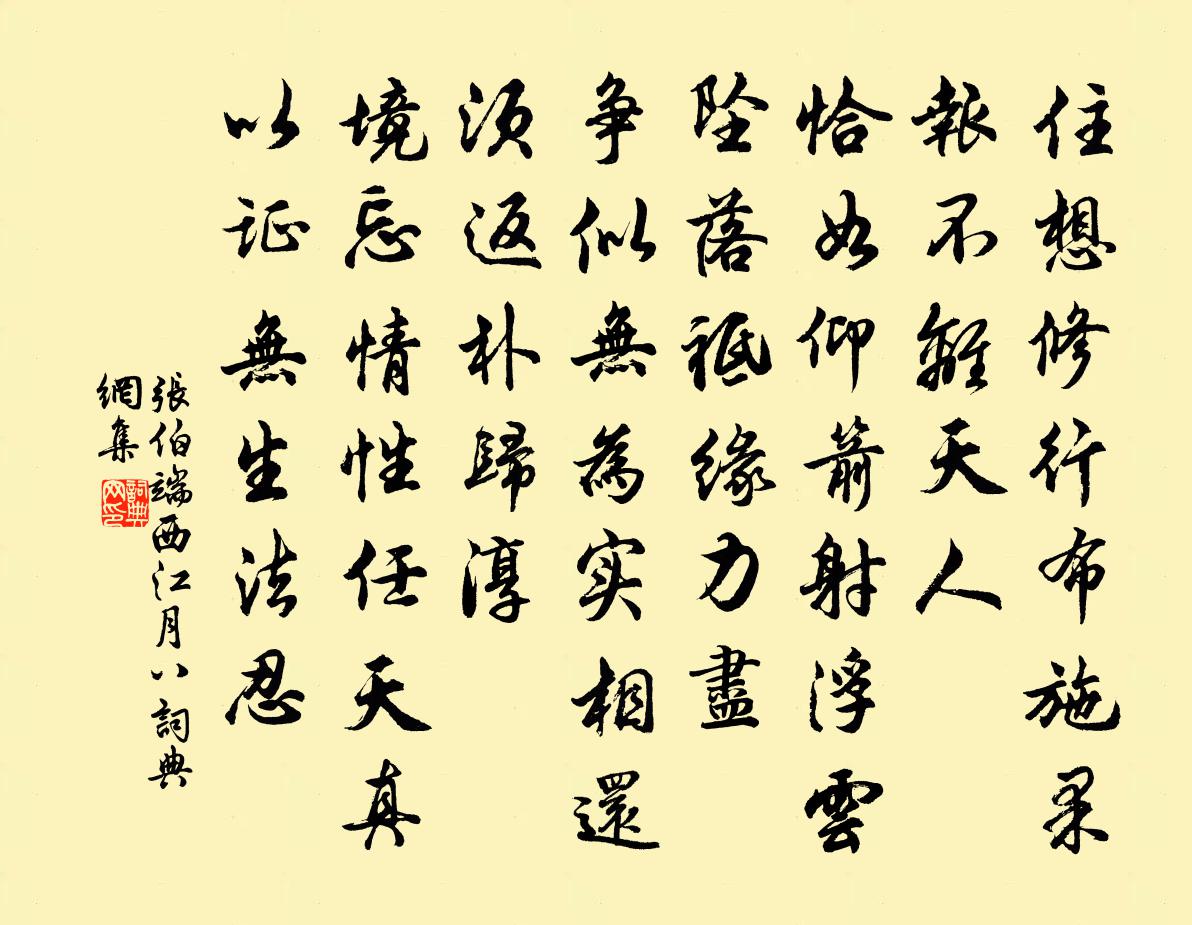 住想修行布施果
報不離天人
恰如仰箭射浮雲
墜落祗緣力盡
争似無為实相還
须返朴歸淳
境忘情性任天真
以证無生法忍
張伯端西江月八詞典
網集
詞典
网印